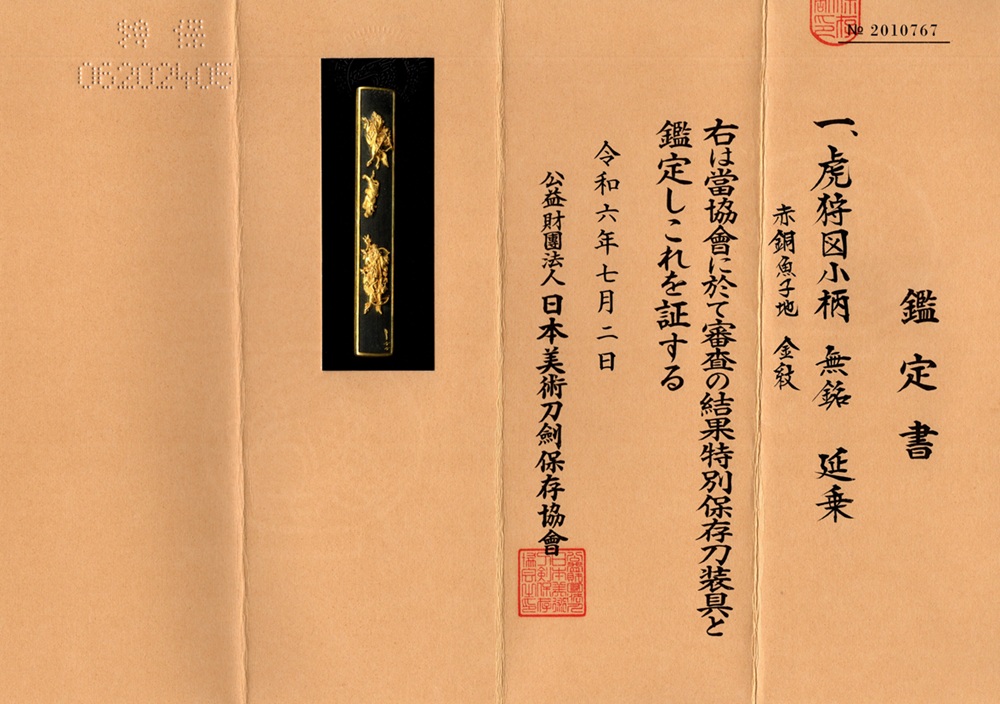 № 2010767
鑑定書
一、虎狩図小柄 無銘 延乗
赤銅魚子地 金紋
右は當協會に於て審査の結果特別保存刀装具と
鑑定しこれを証する
令和六年七月二日
公益財團法人日本美術刀劍保存協會
特保
06202405